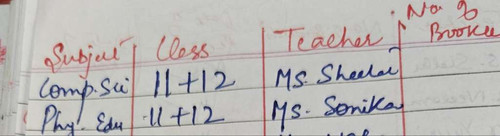 Subject Class Teacher No. of Books
Comp. Sci 11+12 MS. Sheelai
Phy. Edu 11+12 MS. Sonika